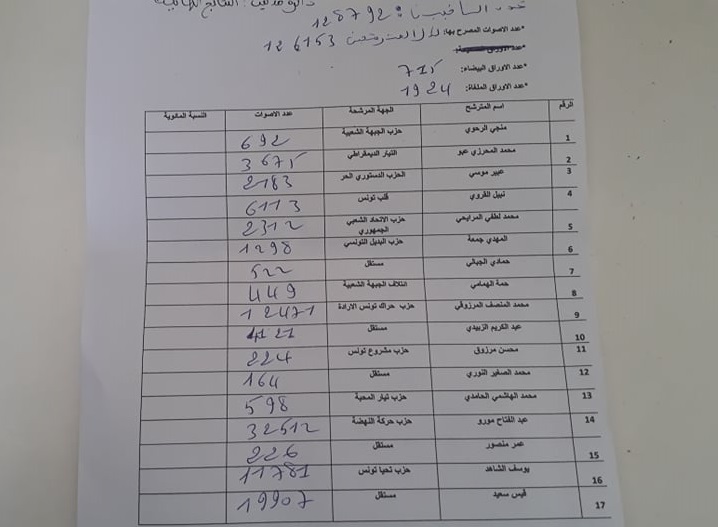 عدد الناخبين: 128792
*عدد الاصوات المصرح بها: 126153
*عدد الاوراق البيضاء: 715
*عدد الاوراق الملغاة: 1924
الرقم اسم المترشح الجهة المرشحة عدد الاصوات النسبة المائوية
1 منجي الرحوي حزب الجبهة الشعبية 692
2 محمد المحرزي عبو التيار الديمقراطي 3675
3 عبير موسي الحزب الدستوري الحر 2183
4 نبيل القروي قلب تونس 6113
5 محمد لطفي المرايحي حزب الاتحاد الشعبي الجمهوري 2312
6 المهدي جمعة حزب البديل التونسي 1298
7 حمادي الجبالي مستقل 522
8 حمة الهمامي ائتلاف الجبهة الشعبية 449
9 محمد المنصف المرزوقي حزب حراك تونس الارادة 12471
10 عبد الكريم الزبيدي مستقل 4121
11 محسن مرزوق حزب مشروع تونس 224
12 محمد الصغير النوري مستقل 164
13 محمد الهاشمي الحامدي حزب تيار المحبة 598
14 عبد الفتاح مورو حزب حركة النهضة 32512
15 عمر منصور مستقل 226
16 يوسف الشاهد حزب تحيا تونس 11781
17 قيس سعيد مستقل 19907